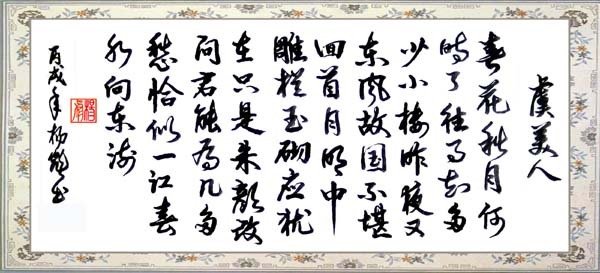 虞美人
春花秋月何
时了往事知多
少小楼昨夜又
东风故国不堪
回首月明中
雕栏玉砌应犹
在只是朱颜改
问君能有几多
愁恰似一江春
水向东流
丙戌年杨书